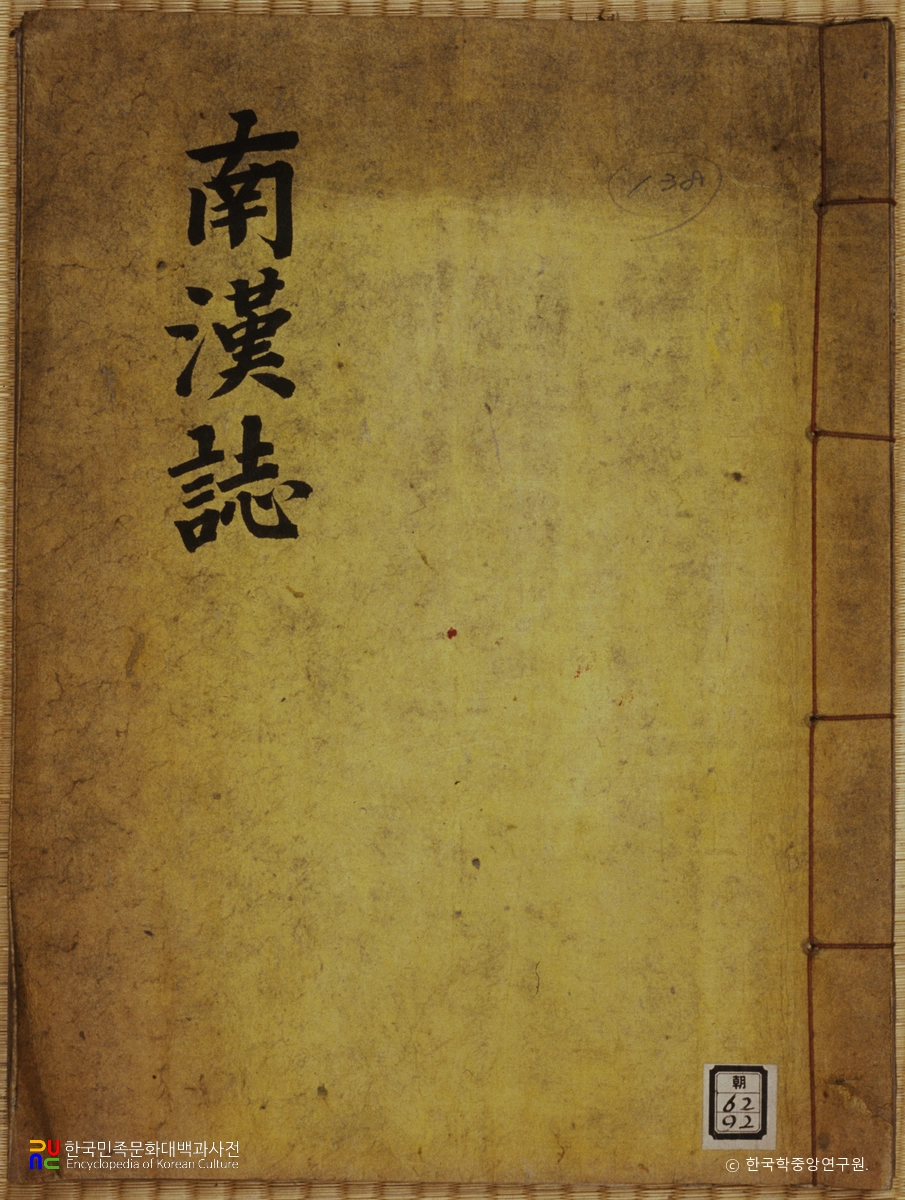 南漢誌
朝
62
92
한국민족문화대백과사전
Encyclopedia of Korean Culture
ⓒ 한국학중앙연구원.